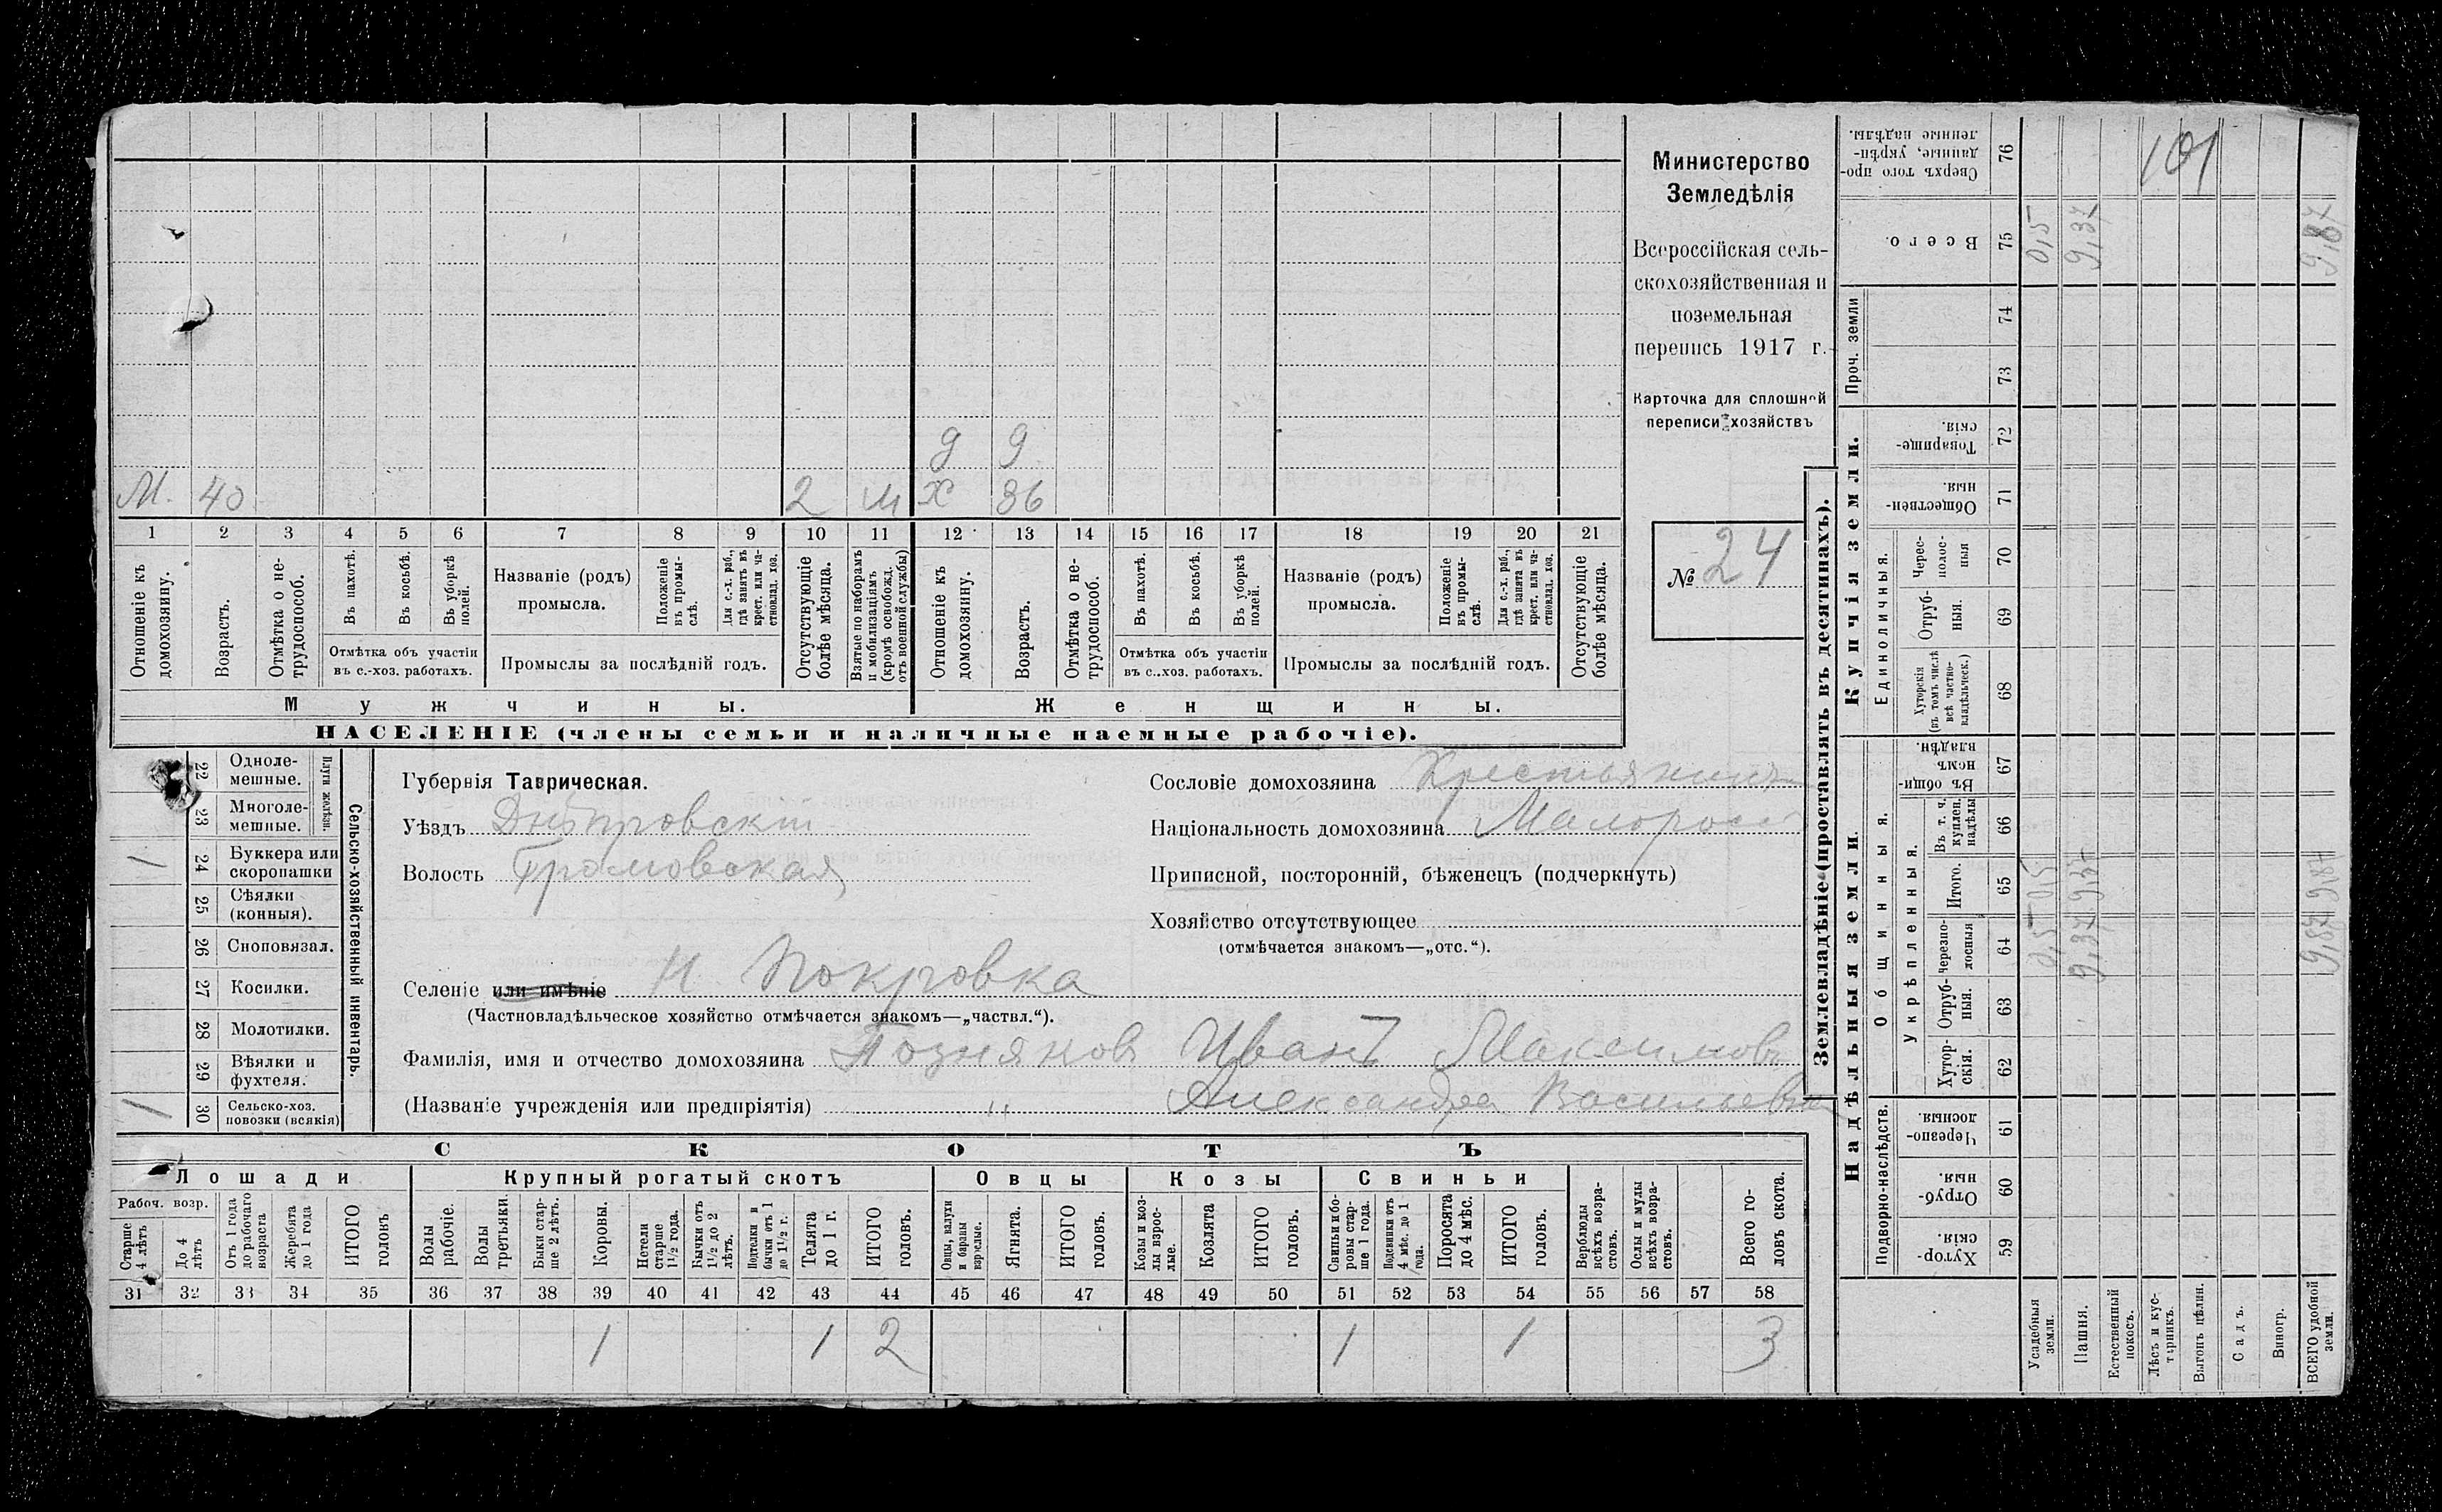 Министерство
Земледѣлія
Всероссійская сель-
скохозяйственная и
поземельная
перепись 1917 г.
Карточка для сплошной
переписи хозяйствъ
№ 24
д 9
М. 40 2 м х 36
1 2 3 4 5 6 7 8 9 10 11 12 13 14 15 16 17 18 19 20 21
Отношеніе къ домохозяину.
Возрастъ.
Отмѣтка о не-трудоспособ.
Въ пахотѣ.
Въ косьбѣ.
Въ уборкѣ полей.
Отмѣтка объ участіи
въ с.-хоз. работахъ.
Названіе (родъ)
промысла.
Положеніе въ промы-слѣ.
Для с.-х. раб., гдѣ занятъ въ крест. или ча-стновлад. хоз.
Промыслы за послѣдній годъ.
Отсутствующіе болѣе мѣсяца.
Взятые по наборамъ и мобилизаціямъ (кромѣ освобожд. отъ военной службы)
Отношеніе къ домохозяину.
Возрастъ.
Отмѣтка о не-трудоспособ.
Въ пахотѣ.
Въ косьбѣ.
Въ уборкѣ полей.
Отмѣтка объ участіи
въ с..хоз. работахъ.
Названіе (родъ)
промысла.
Положеніе въ промы-слѣ.
Для с.-х. раб., гдѣ занята въ крест. или ча-стновлад. хоз.
Промыслы за послѣдній годъ.
Отсутствующіе болѣе мѣсяца.
Мужчины. Женщины.
НАСЕЛЕНІЕ (члены семьи и наличные наемные рабочіе).
Сельско-хозяйственный инвентарь.
Плуги желѣзн.
22 Одноле-мешные.
23 Многоле-мешные.
24 Буккера или скоропашки 1
25 Сѣялки (конныя).
26 Сноповязал.
27 Косилки.
28 Молотилки.
29 Вѣялки и фухтеля.
30 Сельско-хоз. повозки (всякія) 1
Губернія Таврическая.
Уѣздъ Днѣпровскій
Волость Громовская
Селеніе или имѣніе Н. Покровка
(Частновладѣльческое хозяйство отмѣчается знакомъ—„частвл.“).
Фамилія, имя и отчество домохозяина Позняковъ Иванъ Максимовъ
(Названіе учрежденія или предпріятія) " Александра Васильевна
Сословіе домохозяина Крестьянинъ
Національность домохозяина Малоросс
Приписной, посторонній, бѣженецъ (подчеркнуть)
Хозяйство отсутствующее
(отмѣчается знакомъ—„отс.“).
СКОТЪ
Лошади Крупный рогатый скотъ Овцы Козы Свиньи
Рабоч. возр.
Старше 4 лѣтъ
До 4 лѣтъ
Отъ 1 года до рабочаго возраста
Жеребята до 1 года
ИТОГО головъ
Волы рабочіе.
Волы третьяки.
Быки стар-ше 2 лѣтъ.
Коровы.
Нетели старше 1½ года.
Бычки отъ 1½ до 2 лѣтъ.
Подтелки и бычки отъ 1 до 1½ г.
Телята до 1 г.
ИТОГО головъ.
Овцы, валухи и бараны взрослые.
Ягнята.
ИТОГО головъ.
Козы и коз-лы взрос-лые.
Козлята
ИТОГО головъ.
Свиньи и бо-ровы стар-ше 1 года.
Подсвинки отъ 4 мѣс. до 1 года.
Поросята до 4 мѣс.
ИТОГО головъ.
Верблюды всѣхъ возра-стовъ.
Ослы и мулы всѣхъ возра-стовъ.
Всего го-ловъ скота.
31 32 33 34 35 36 37 38 39 40 41 42 43 44 45 46 47 48 49 50 51 52 53 54 55 56 57 58
1 1 2 1 1 3
Землевладѣніе (проставлять въ десятинахъ).
Надѣльныя земли. Купчія земли. Проч. земли
Подворно-наслѣдств. Общинныя. Укрѣпленныя. Единоличныя.
Сверхъ того про-данные, укрѣп-ленные надѣлы. 76
Всего. 75
74
73
Товарище-скія. 72
Обществен-ныя. 71
Черес-полос-ныя 70
Отруб-ныя. 69
Хуторскія (въ томъ числѣ всѣ частно-владѣльческ.) 68
Въ общи-номъ владѣн. 67
Въ т. ч. куплен. надѣлы 66
Итого. 65
Черезпо-лосныя 64
Отруб-ныя. 63
Хутор-скія. 62
Черезпо-лосныя. 61
Отруб-ныя. 60
Хутор-скія. 59
Усадебныя земли. 0,5 0,5 0,5
Пашня. 9,37 9,37 9,37
Естественный покосъ.
Лѣсъ и кус-тарникъ.
Выгонъ цѣлин.
Садъ.
Виногр.
ВСЕГО удобной земли. 9,87 9,87 9,87
101